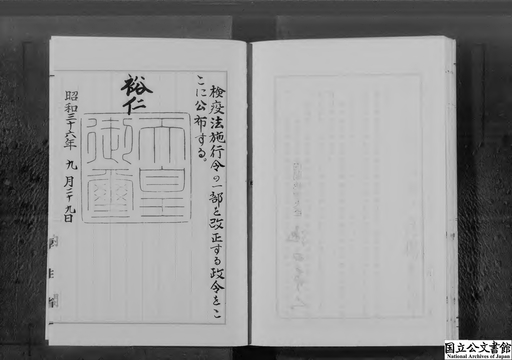 検疫法施行令の一部を改正する政令をこ
こに公布する。
裕仁
天皇
御璽
昭和三十六年九月二十九日
国立公文書館
National Archives of Japan